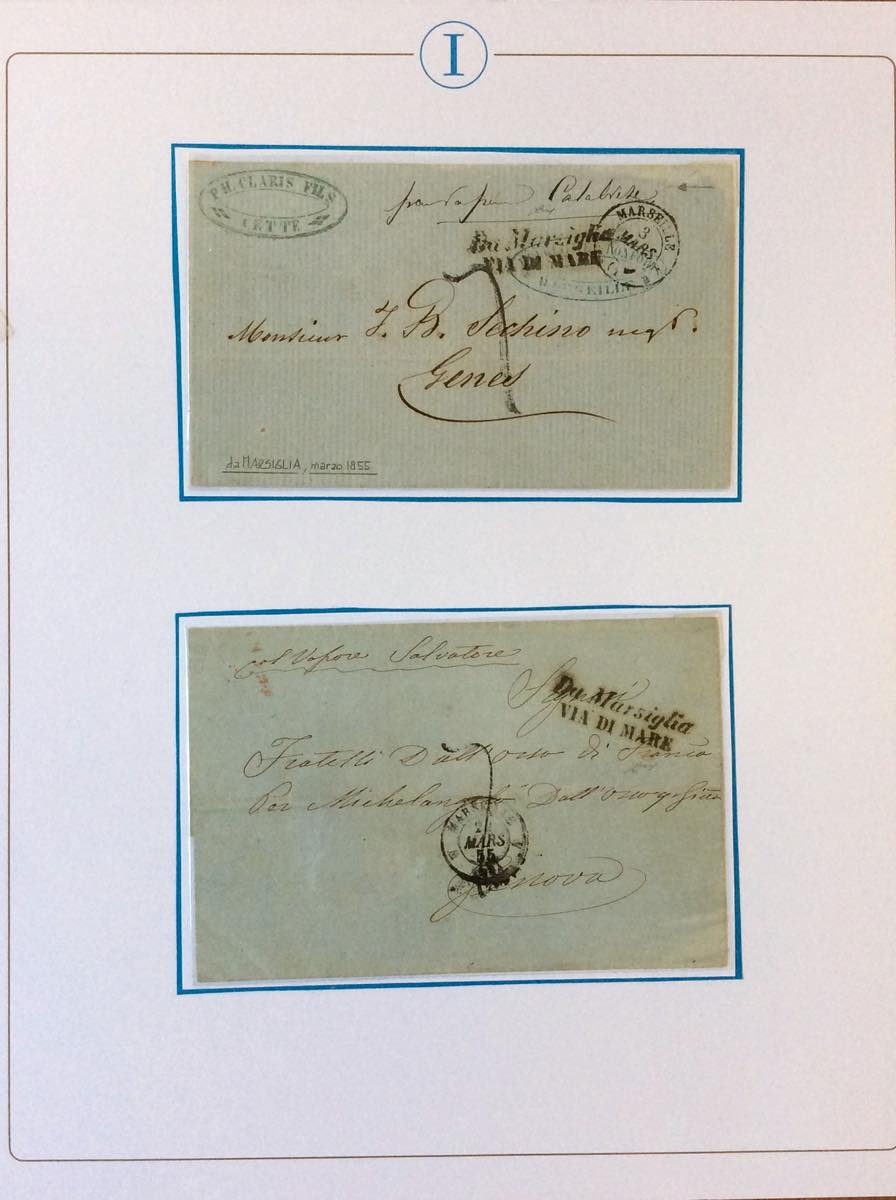 I
PH. CLARIS FILS
CETTE
par vapeur Calabrese
Da Marsiglia
VIA DI MARE
MARSEILLE
3
MARS
MARSEILLE
Monsieur J. B. Sechino negt.
Genes
da MARSIGLIA, marzo 1855
col Vapore Salvatore
Da Marsiglia
VIA DI MARE
Fratelli Dall'Orso di
Per Michelangelo Dall'Orso
MARSEILLE
MARS
55
Genova